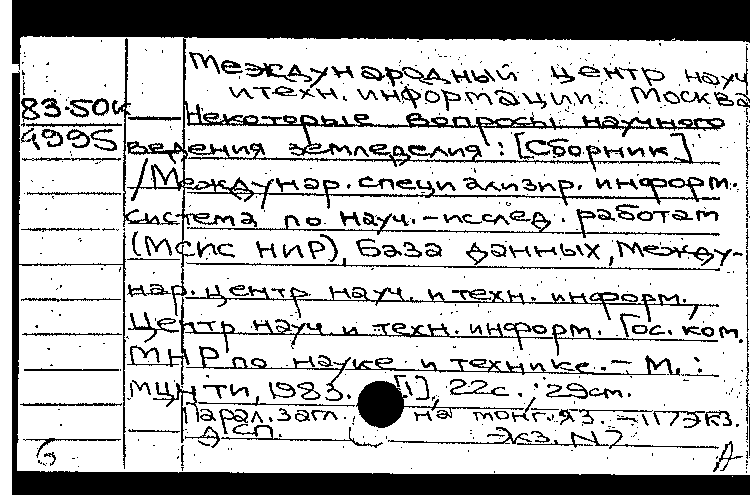 Международный центр науч.
и техн. информации. Москва
83-50к Некоторые вопросы научного
4995 ведения земледелия : [Сборник]
/Междунар. специализир. информ.
система по науч.-исслед. работам
(МСИС НИР), База данных, Между-
нар. центр науч. и техн. информ.,
Центр науч. и техн. информ. Гос. ком.
МНР по науке и технике. - М. :
МЦНТИ, 1983. [1], 22с. ; 29см.
Парал. загл. на монг. яз. - 117 экз.
ДСП. Экз. N7